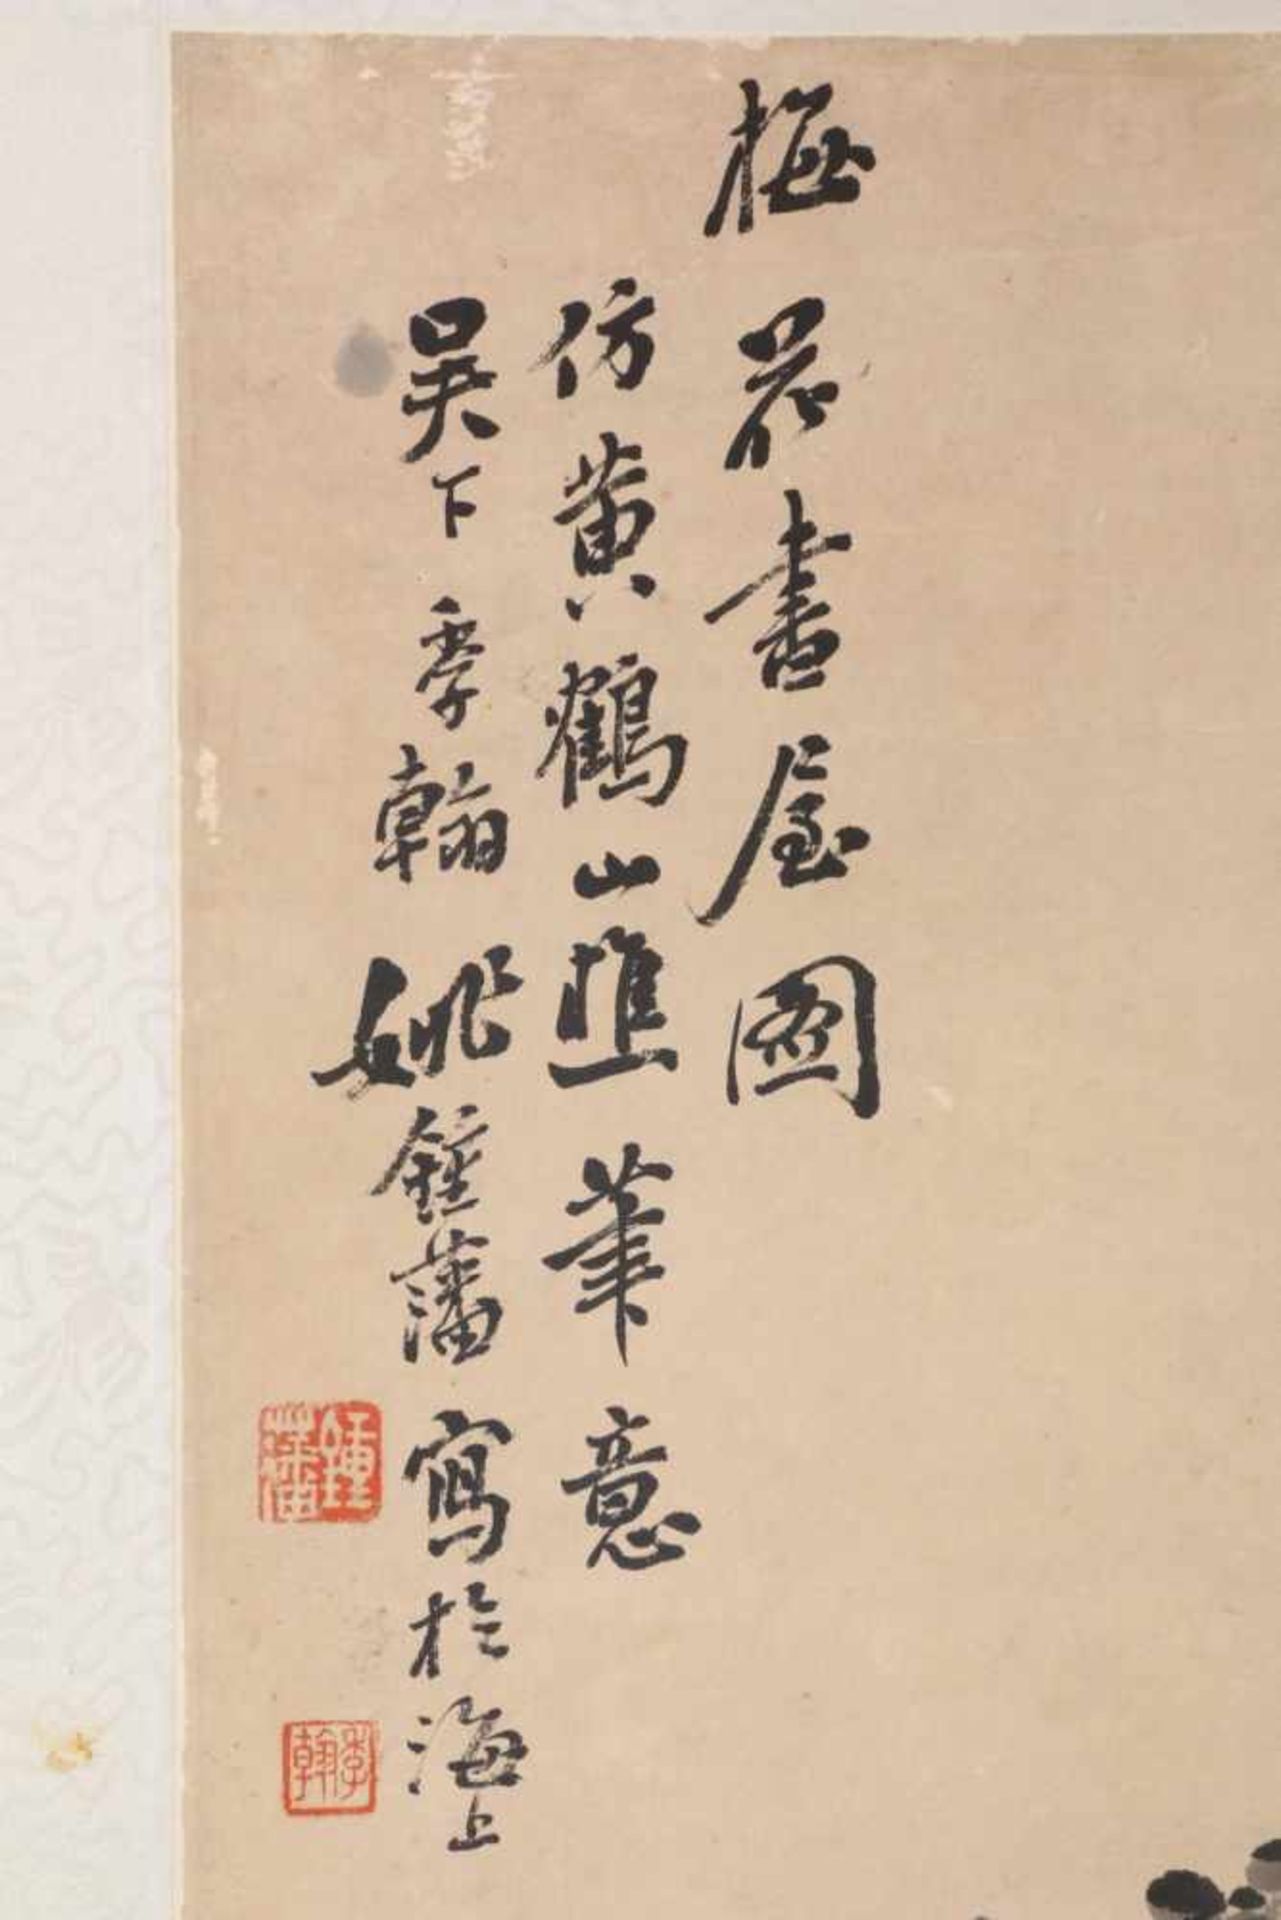 梅花書屋图
仿黄鶴山樵筆意
吴下季翰姚鍾藩寫於海上
鍾藩
季翰